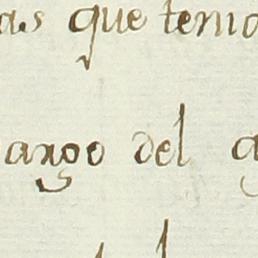 as que tenia
argo del